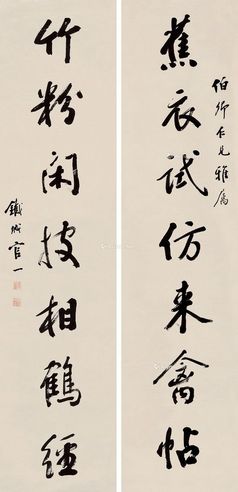 蕉衣试仿来禽帖
伯卿仁兄雅属
竹粉闲披相鹤经
铁城官一